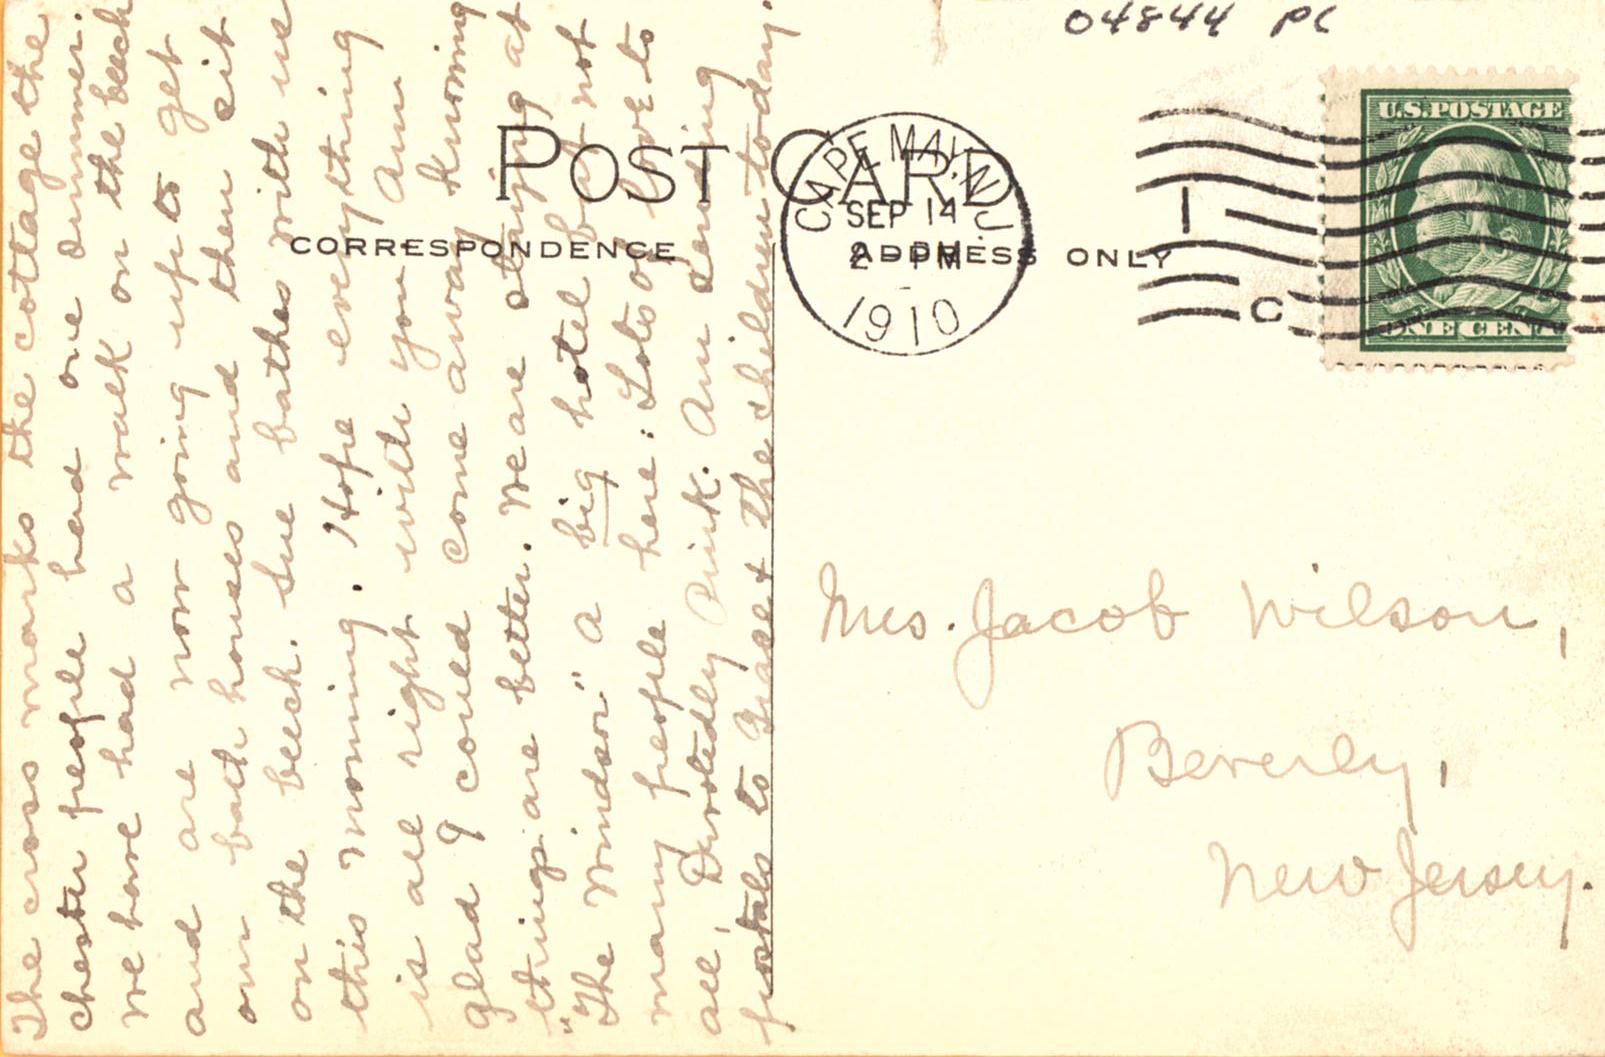 04844 PC
POST CARD
CORRESPONDENCE
ADDRESS ONLY
CAPE MAY, N.J.
SEP 14
2 - PM
1910
1
C
U.S. POSTAGE
ONE CENT
The cross marks the cottage the
chester people had one summer.
We have had a walk on the beech
and are now going up to get
our bath houses and then sit
on the beech. Sue bathes with us
this morning. Hope everything
is all right with you Am
glad I could come away knowing
things are better. We are staying at
"The Windsor" a big hotel but not
many people here: Lots of love to
all, Devotedly Pink. Am sending
postals to Grace & the children today.
Mrs. Jacob Wilson,
Beverly,
New Jersey.